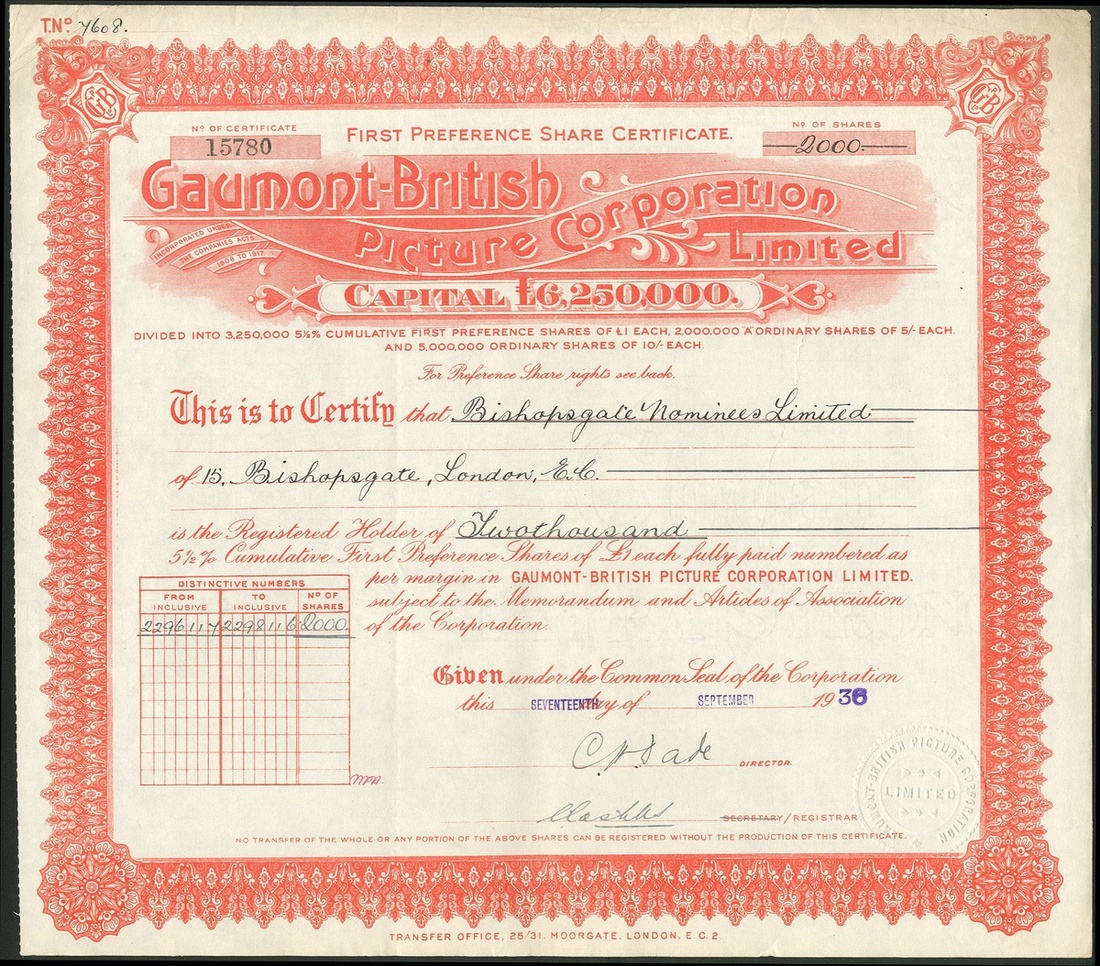 T.Nº 7608.
GB
GB
Nº OF CERTIFICATE
15780
FIRST PREFERENCE SHARE CERTIFICATE.
Nº OF SHARES
2000
Gaumont-British
Picture Corporation
Limited
INCORPORATED UNDER
THE COMPANIES ACTS
1908 TO 1917.
CAPITAL £6,250,000.
DIVIDED INTO 3,250,000 5½% CUMULATIVE FIRST PREFERENCE SHARES OF £1 EACH, 2,000,000 "A" ORDINARY SHARES OF 5/- EACH.
AND 5,000,000 ORDINARY SHARES OF 10/- EACH.
For Preference Share rights see back.
This is to Certify that Bishopsgate Nominees Limited
of 15, Bishopsgate, London, E.C.
is the Registered Holder of Two thousand
5½% Cumulative First Preference Shares of £1 each fully paid numbered as
per margin in GAUMONT-BRITISH PICTURE CORPORATION LIMITED.
subject to the Memorandum and Articles of Association
of the Corporation.
DISTINCTIVE NUMBERS
FROM INCLUSIVE TO INCLUSIVE Nº OF SHARES
2296117 2298116 2000
Given under the Common Seal of the Corporation
this SEVENTEENTH day of SEPTEMBER 1936
DIRECTOR.
SECRETARY/REGISTRAR
GAUMONT-BRITISH PICTURE CORPORATION
LIMITED
NO TRANSFER OF THE WHOLE OR ANY PORTION OF THE ABOVE SHARES CAN BE REGISTERED WITHOUT THE PRODUCTION OF THIS CERTIFICATE.
TRANSFER OFFICE, 25/31. MOORGATE. LONDON. E.C.2